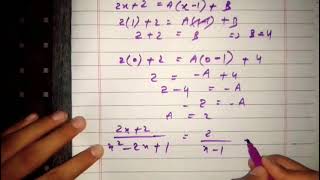 2x+2 = A(x-1) + B
2(1)+2 = A(1-1) + B
2+2 = B => B=4
2(0)+2 = A(0-1) + 4
2 = -A + 4
2-4 = -A
-2 = -A
A = 2
2x+2 / x²-2x+1 = 2 / x-1